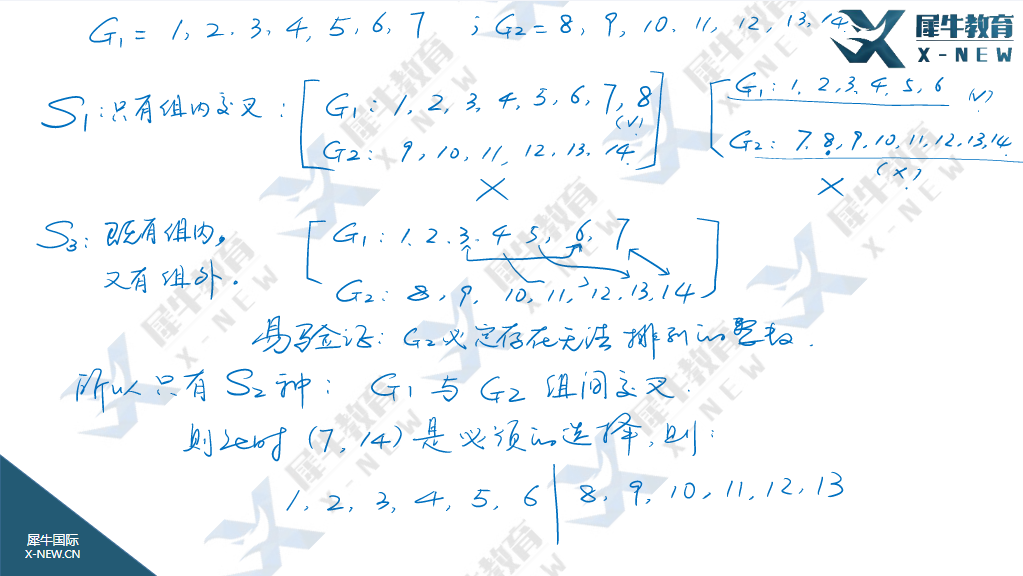 G₁ = 1, 2, 3, 4, 5, 6, 7 ; G₂ = 8, 9, 10, 11, 12, 13, 14
犀牛教育
X-NEW
S₁: 只有组内交叉: G₁: 1, 2, 3, 4, 5, 6, 7, 8 (√)
G₂: 9, 10, 11, 12, 13, 14
×
G₁: 1, 2, 3, 4, 5, 6 (√)
G₂: 7, 8, 9, 10, 11, 12, 13, 14
(×)
×
S₃: 既有组内, 又有组外.
G₁: 1, 2, 3, 4, 5, 6, 7
G₂: 8, 9, 10, 11, 12, 13, 14
易验证: G₂必定存在无法排列的整数.
所以只有S₂种: G₁与G₂组间交叉.
则此时 (7, 14) 是必须的选择, 则:
1, 2, 3, 4, 5, 6 | 8, 9, 10, 11, 12, 13
犀牛国际
X-NEW.CN